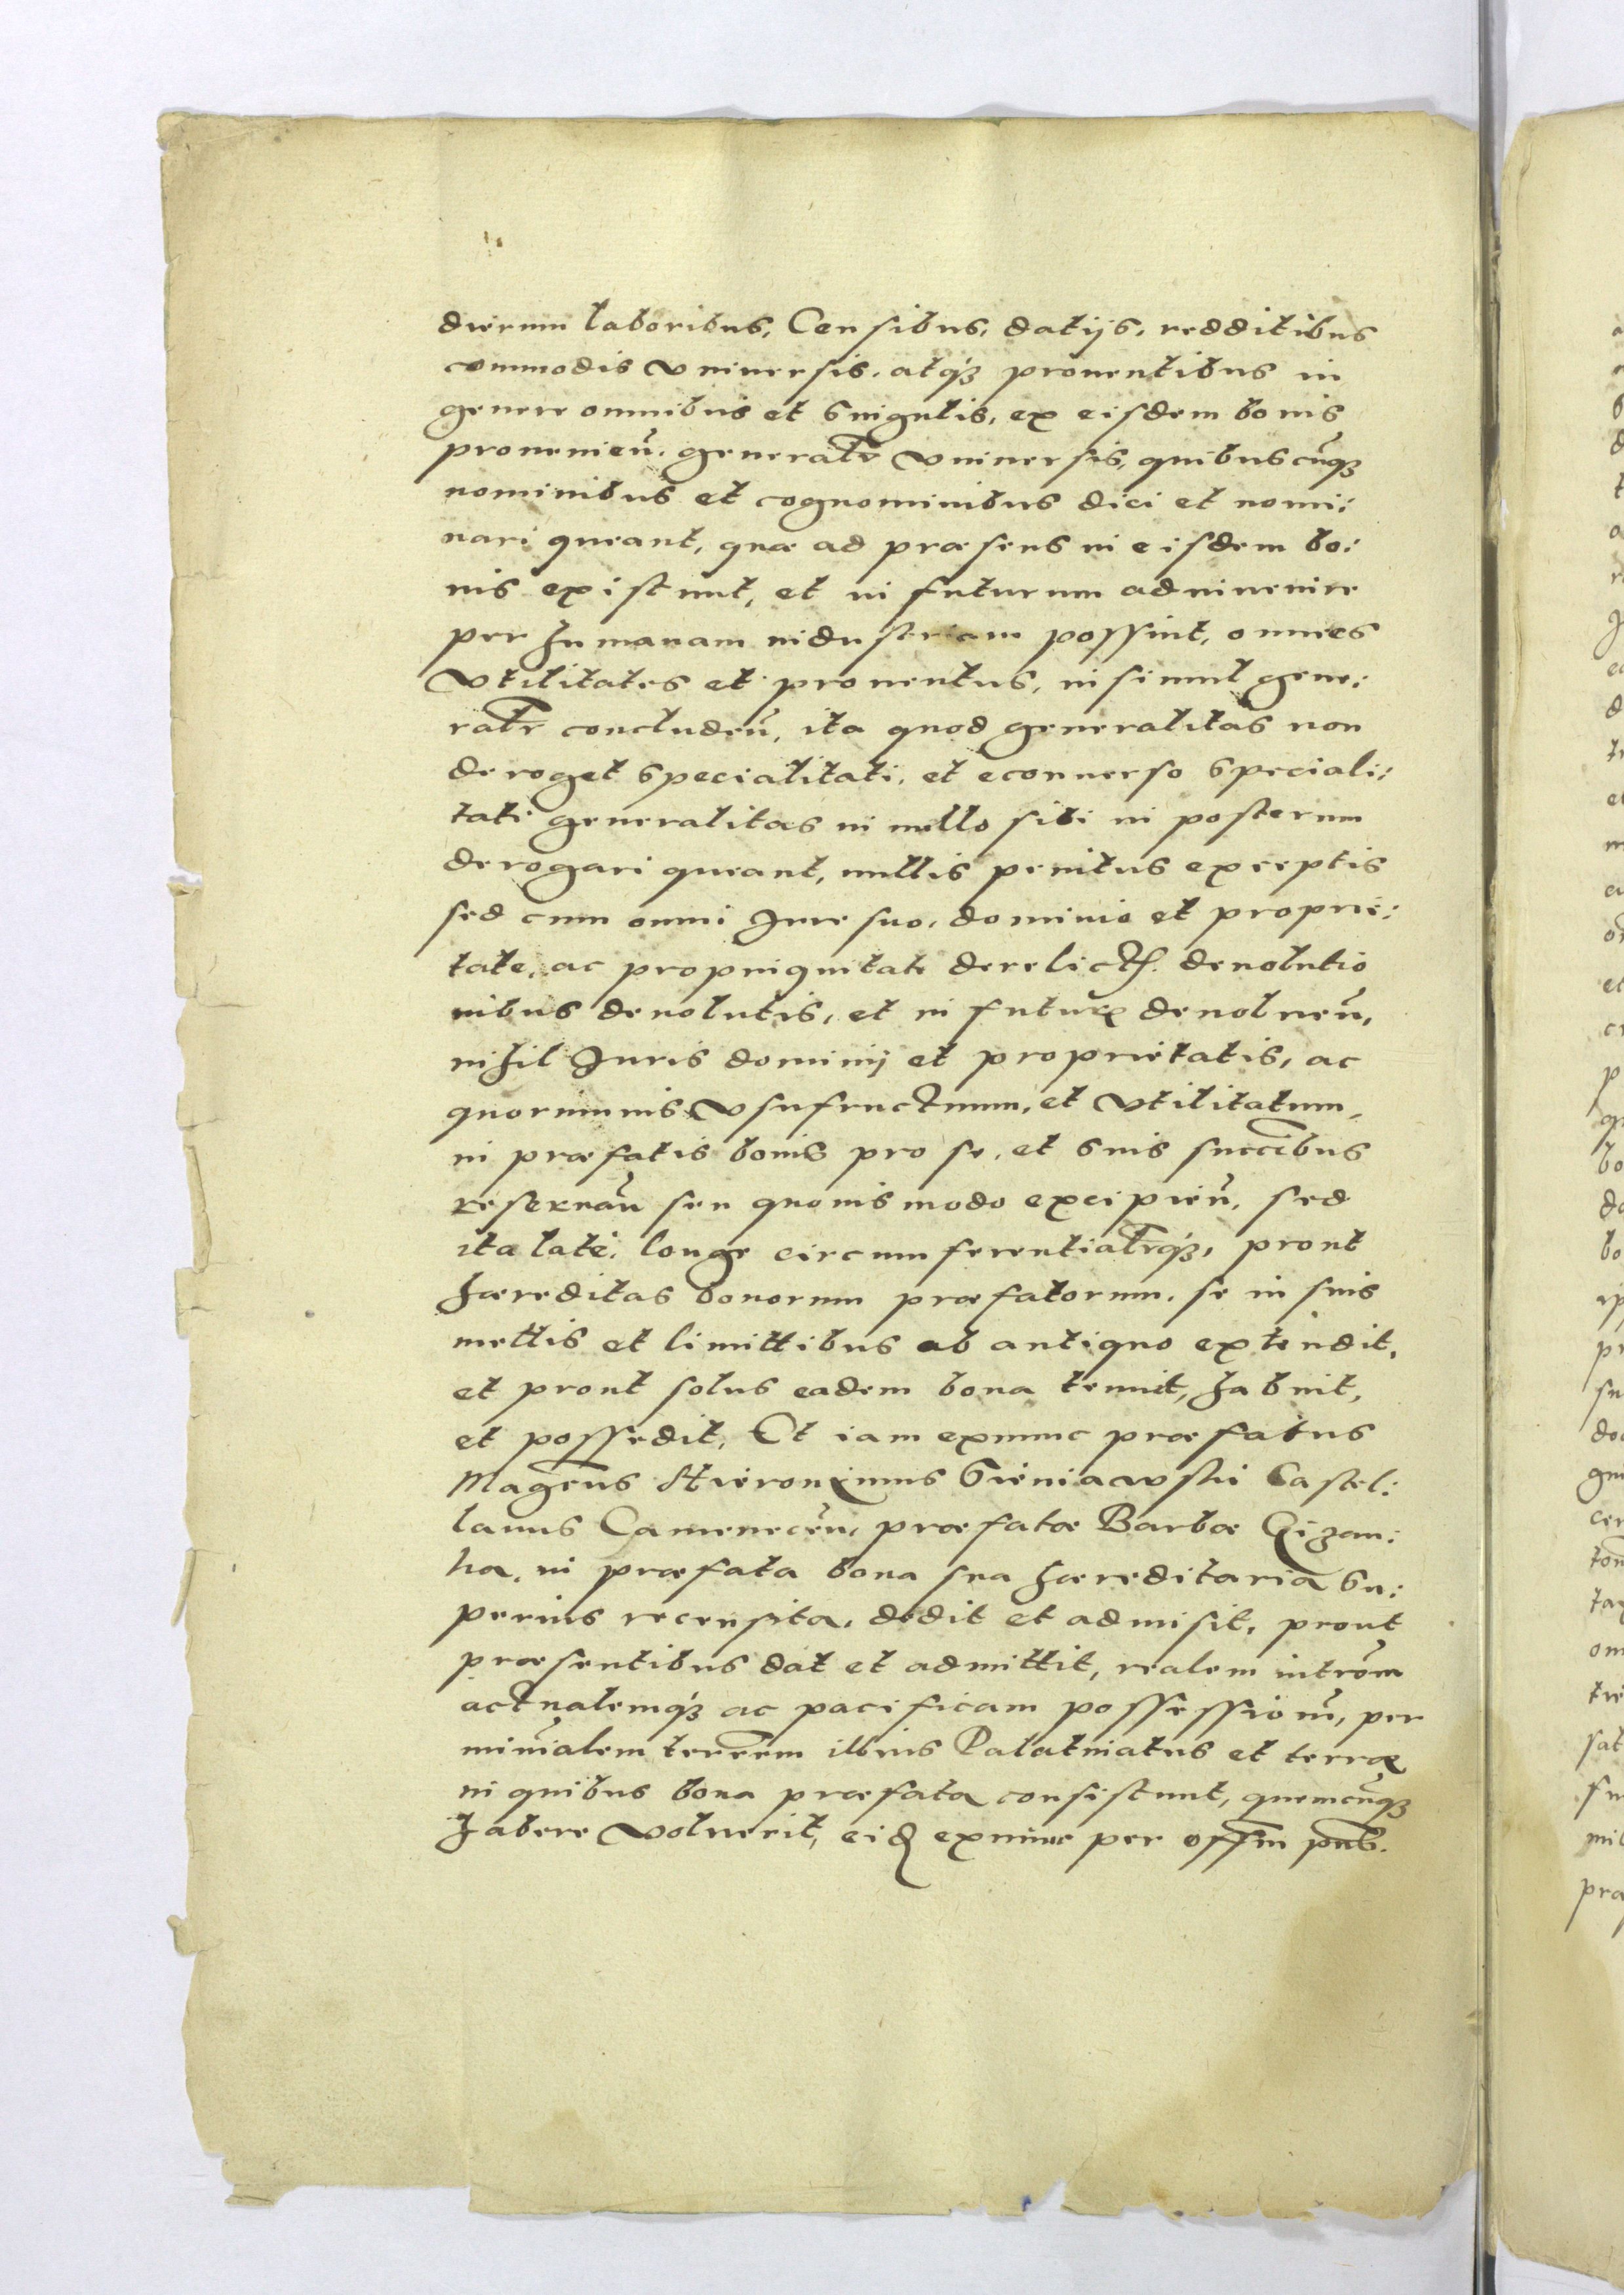 dierum laboribus, Censibus, datijs, redditibus
commodis vniuersis, atq₃ prouentibus in
genere omnibus et singulis, ex eisdem bonis
prouenien̄. generalr̄ vniuersis, quibuscūq₃
nominibus et cognominibus dici et nomi:
nari queant, quæ ad præsens in eisdem bo:
nis existunt, et in futurum adinuenire
per humanam industriam possint, omnes
vtilitates et prouentus, in simul gene:
ralr̄ concluden̄, ita quod generalitas non
deroget specialitati, et econuerso speciali:
tati generalitas in nullo sibi in posterum
derogari queant, nullis penitus exceptis
sed cum omni Jure suo, dominio et proprie:
tate, ac propinquitate derelict. deuolutio
nibus deuolutis, et in futur deuoluen̄,
nihil Juris dominij et proprietatis, ac
quoruinuis vsufructuum, et vtilitatum
in præfatis bonis pro se, et suis succībus
reseruan̄ seu quouismodo excipien̄, sed
ita late, longe circumferentialr̄q₃, prout
hæreditas bonorum præfatorum, se in suis
mettis et limittibus ab antiquo extendit,
et prout solus eadem bona tenuit, habuit,
et possedit, Et iam exnunc præfatus
Magcus Hieronimus Sieniawski Castel:
lanus Camenecen̄, præfatæ Barbæ Gizan:
ka, in præfata bona sua hæreditaria su:
perius recensita, dedit et admisit, prout
præsentibus dat et admittit, realem intrōm
actualemq₃ ac pacificam possessionē, per
minīalem terrēm illius Palatinatus et terræ
in quibus bona præfata consistunt, quemcūq₃
habere voluerit, eid exnunc per offm pnb.